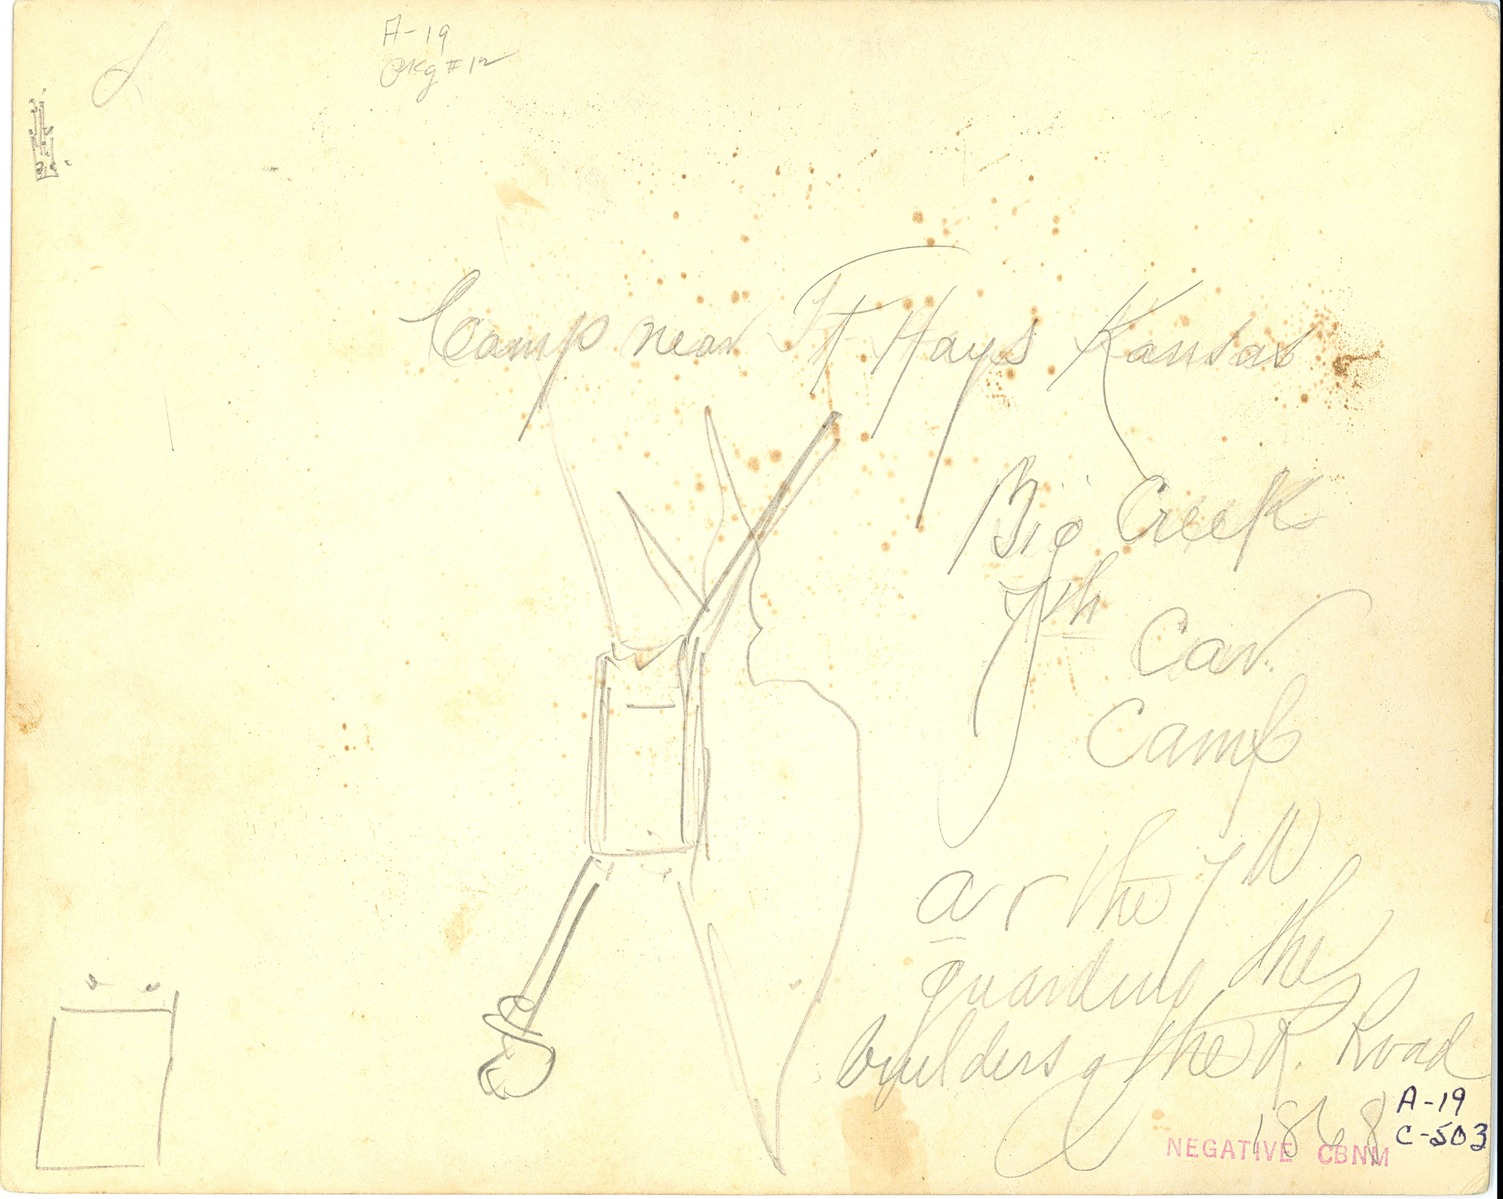 A-19
Pkg #12
Camp near Ft Hays Kansas
Big Creek
7th
Cav.
Camp
ar the 7th
guarding the
builders of the R. Road
1868
A-19
C-503
NEGATIVE CBNM